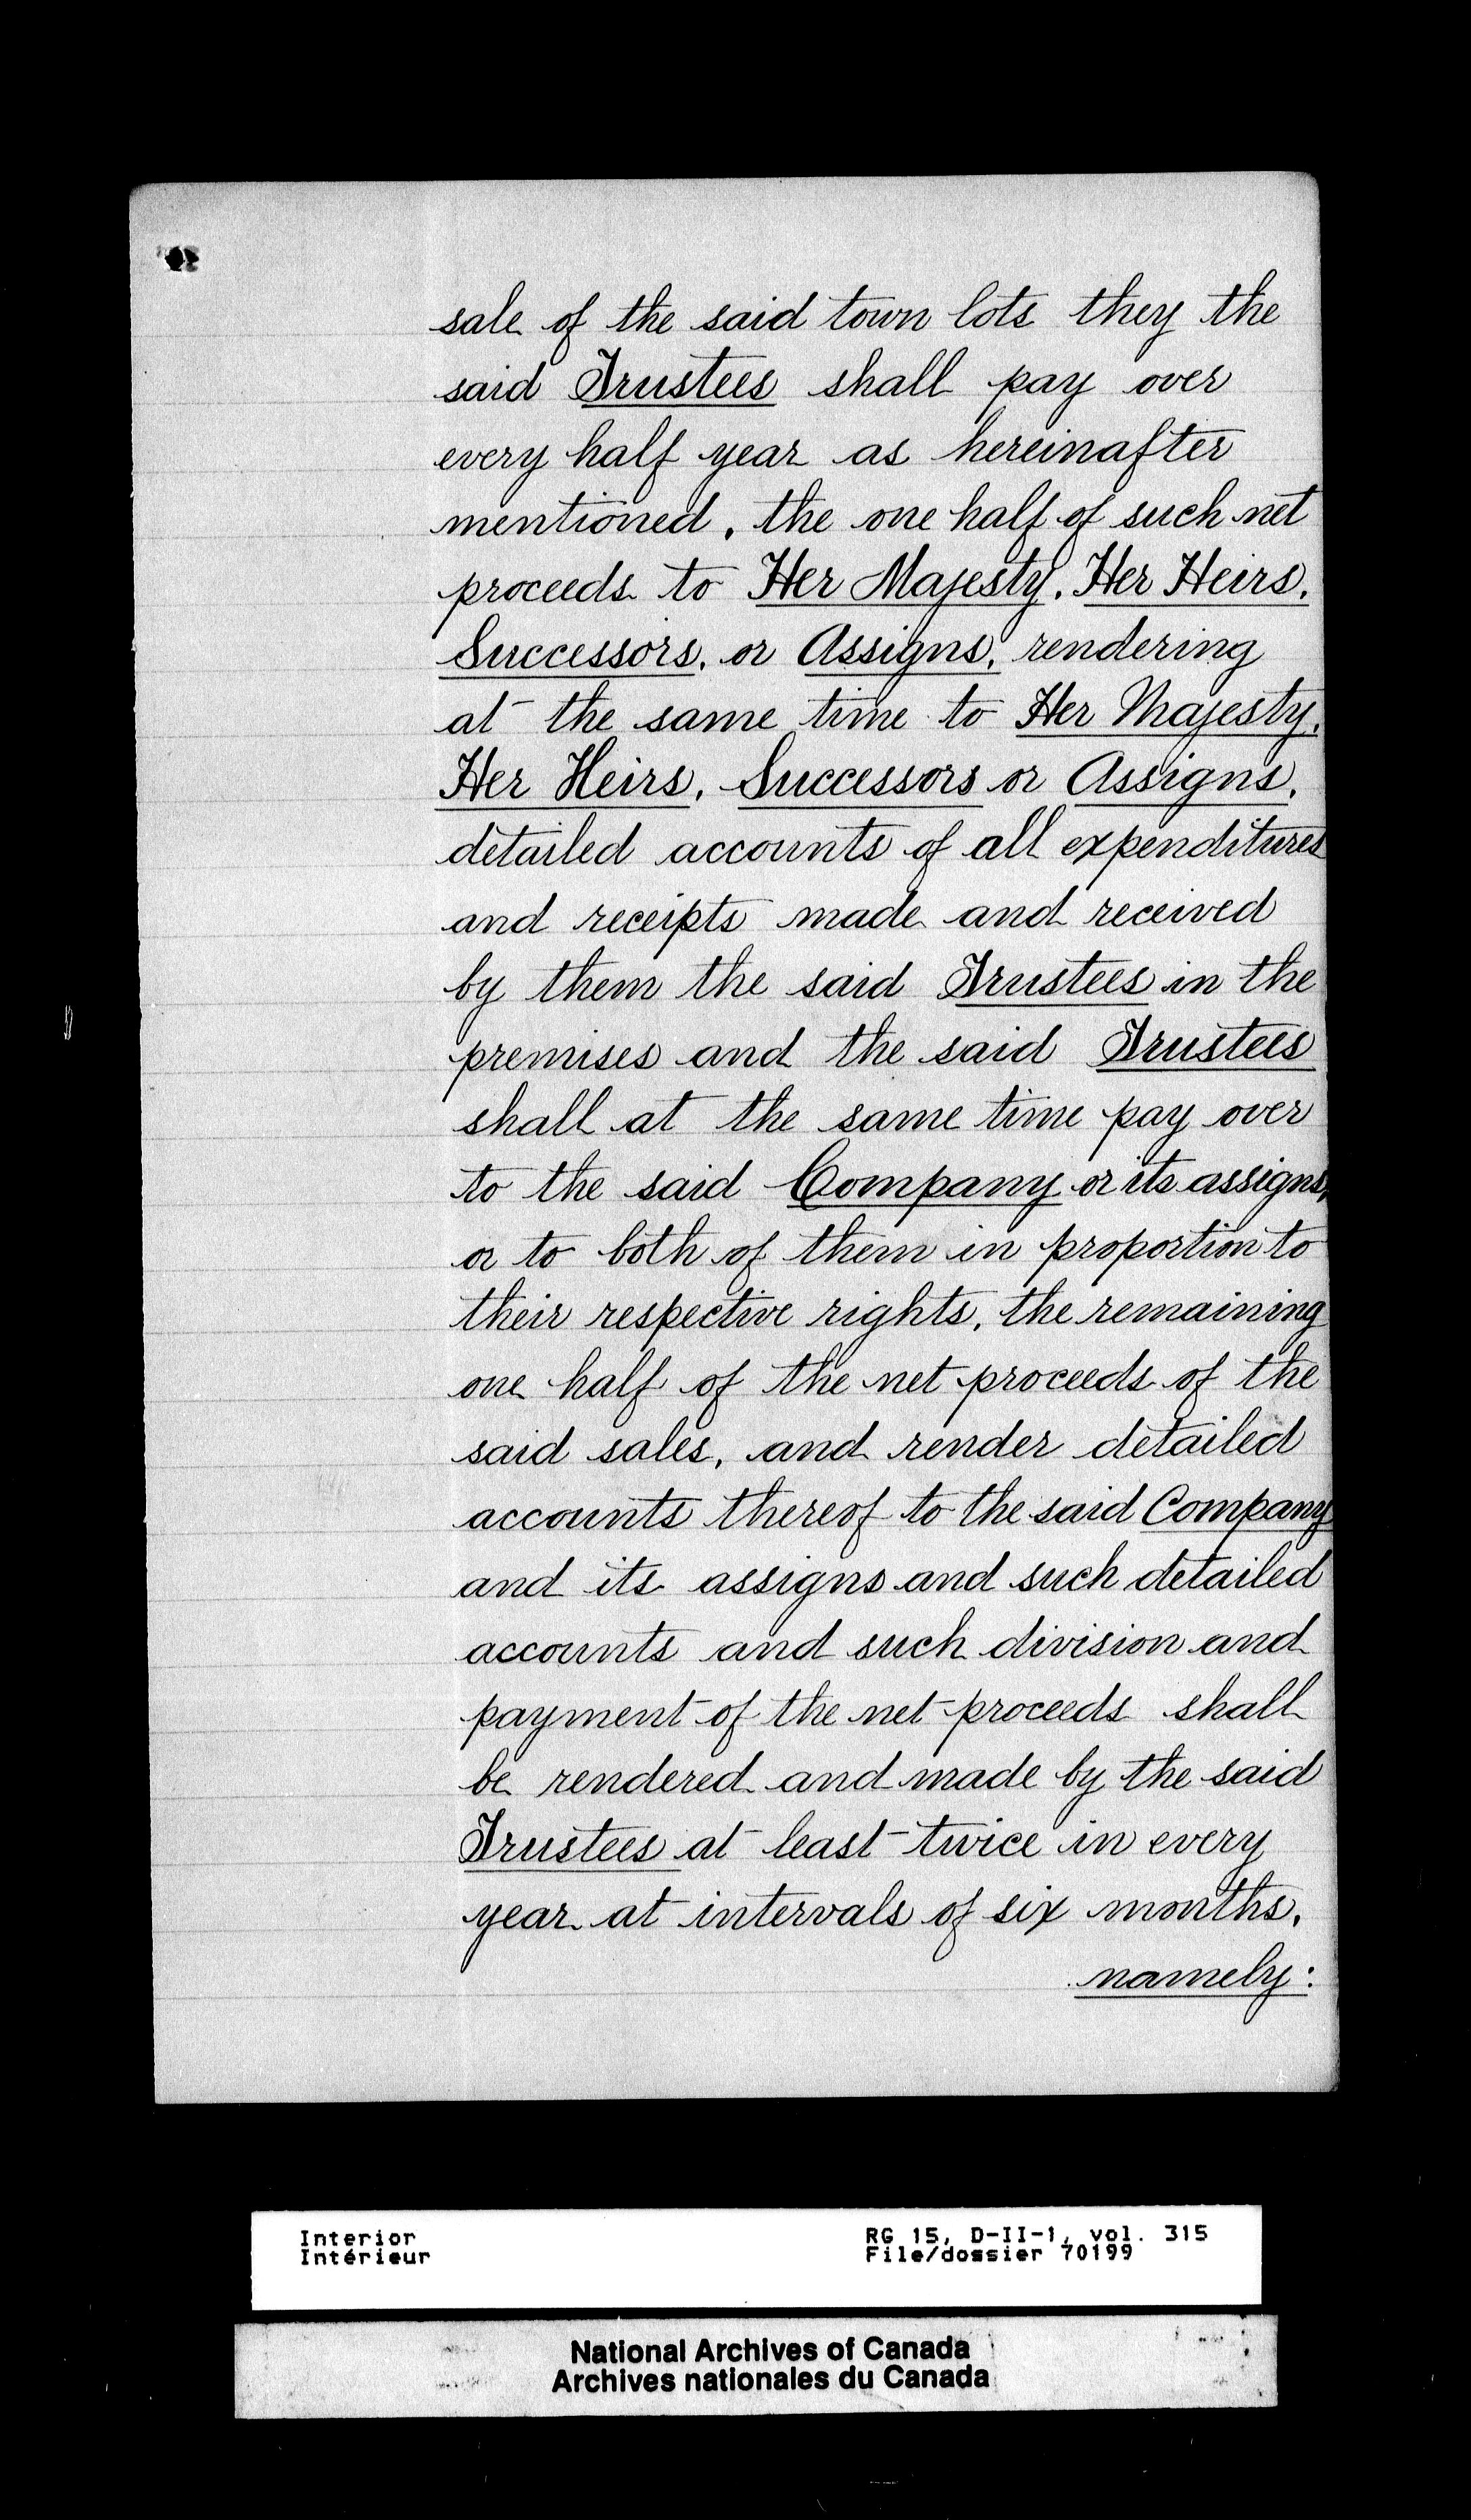 sale of the said town lots they the
said Trustees shall pay over
every half year as hereinafter
mentioned, the one half of such net
proceeds to Her Majesty, Her Heirs,
Successors, or Assigns, rendering
at the same time to Her Majesty,
Her Heirs, Successors or Assigns,
detailed accounts of all expenditures
and receipts made and received
by them the said Trustees in the
premises and the said Trustees
shall at the same time pay over
to the said Company or its assigns,
or to both of them in proportion to
their respective rights, the remaining
one half of the net proceeds of the
said sales, and render detailed
accounts thereof to the said Company
and its assigns and such detailed
accounts and such division and
payment of the net proceeds shall
be rendered and made by the said
Trustees at least twice in every
year at intervals of six months,
namely:
Interior RG 15, D-II-1, vol. 315
Intérieur File/dossier 70199
National Archives of Canada
Archives nationales du Canada